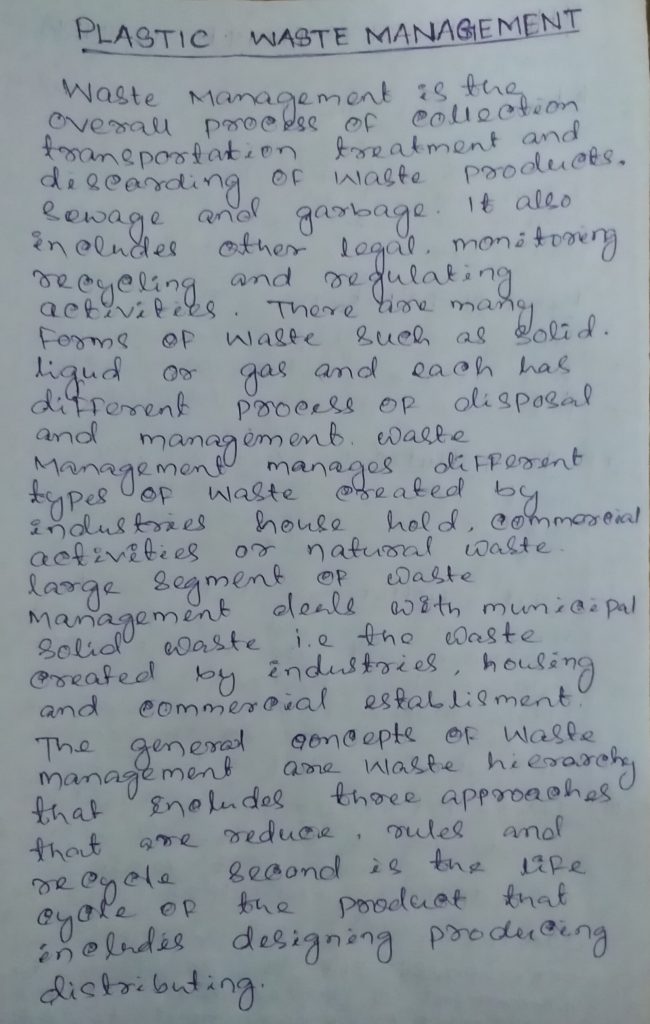 PLASTIC WASTE MANAGEMENT
Waste Management is the
overall process of collection
transportation treatment and
discarding of waste products.
Sewage and garbage. It also
includes other legal. monitoring
recycling and regulating
activities. There are many
Forms of waste such as solid.
liqud or gas and each has
different process of disposal
and management. waste
Management manages different
types of waste created by
industries house hold, commercial
activities or natural waste.
large segment of waste
Management deals with municipal
solid waste i.e the waste
created by industries, housing
and commercial establisment.
The general concepts of waste
management are waste hierarchy
that includes three approaches
that are reduce, rules and
recycle second is the life
cycle of the product that
includes designing producing
distributing.